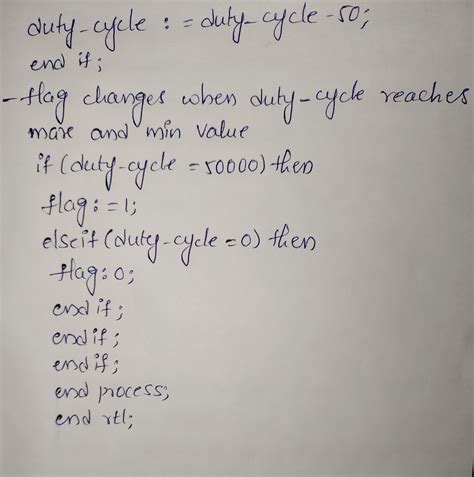 duty-cycle : = duty-cycle - 50;
end if;
- flag changes when duty-cycle reaches
max and min value
if (duty-cycle = 50000) then
flag: = 1;
elseif (duty-cycle = 0) then
flag: 0;
end if;
end if;
end if;
end process;
end rtl;